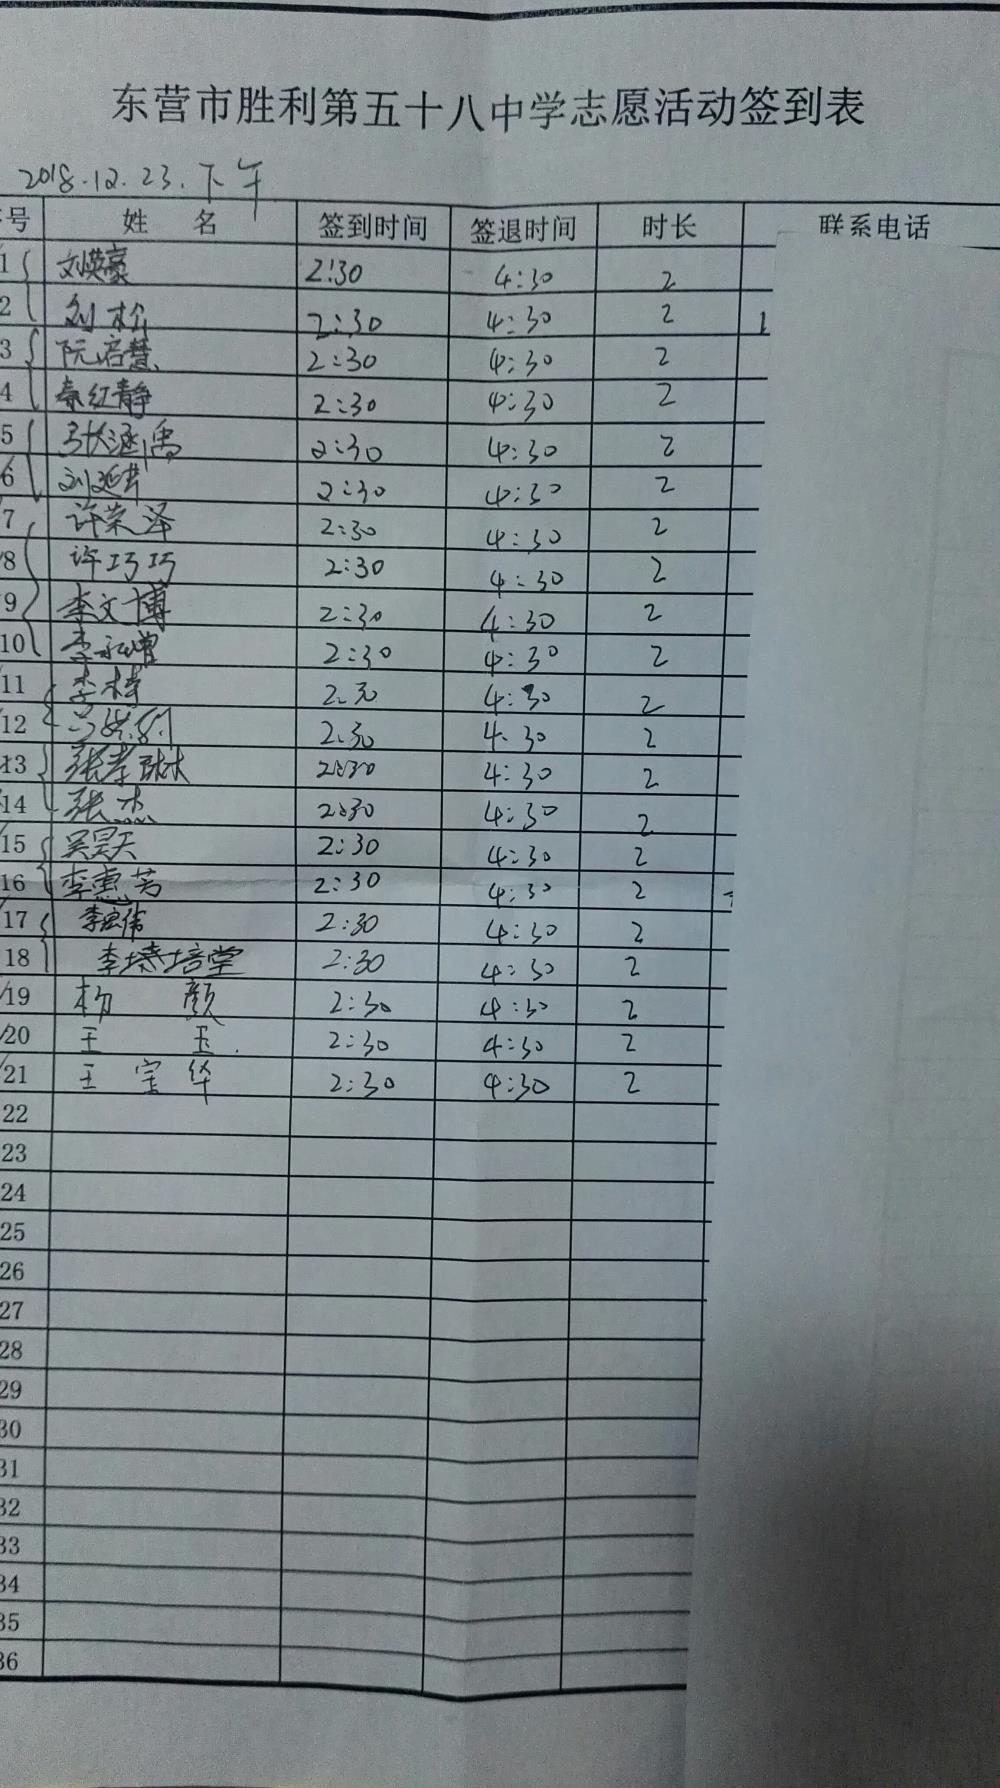 东营市胜利第五十八中学志愿活动签到表
2018.12.23.下午
号 姓 名 签到时间 签退时间 时长 联系电话
1 刘英豪 2:30 4:30 2
2 刘松 2:30 4:30 2
3 阮启慧 2:30 4:30 2
4 秦红静 2:30 4:30 2
5 张涵禹 2:30 4:30 2
6 刘延 2:30 4:30 2
7 许荣泽 2:30 4:30 2
8 许巧巧 2:30 4:30 2
9 李文博 2:30 4:30 2
10 李永增 2:30 4:30 2
11 李梼 2.30 4:30 2
12 2.30 4.30 2
13 张孝琳 2:30 4:30 2
14 张杰 2:30 4:30 2
15 吴昊天 2:30 4:30 2
16 李惠芳 2:30 4:30 2
17 李宏伟 2:30 4:30 2
18 李培堂 2:30 4:30 2
19 杨 颜 2:30 4:30 2
20 王 玉. 2:30 4:30 2
21 王 宝 华 2:30 4:30 2
22
23
24
25
26
27
28
29
30
31
32
33
34
35
36